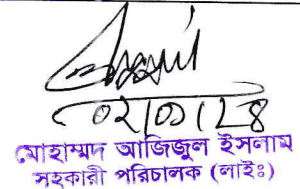 ০২/০১/২৪
মোহাম্মদ আজিজুল ইসলাম
সহকারী পরিচালক (লাইঃ)